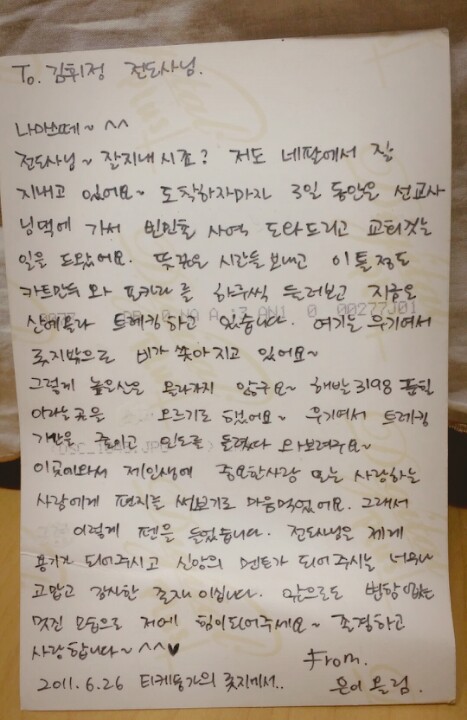 To. 김휘정 전도사님.
나마쓰떼~ ^^
전도사님~ 잘지내시죠? 저도 네팔에서 잘
지내고 있어요~ 도착하자마자 3일 동안은 선교사
님댁에 가서 빈민촌 사역 도와드리고 교회짓는
일을 도왔어요. 뜻깊은 시간들 보내고 이틀정도
카트만두 와 포카라 를 하루씩 둘러보고 지금은
산에올라 트레킹하고 있습니다. 여기는 우기여서
롯지밖으로 비가 쏟아지고 있어요~
00277J01
그렇게 높은산은 올라가지 않구요~ 해발 3198 푼힐
이라는곳을 오르기로 했어요~ 우기여서 트레킹
기간을 줄이고 인도를 들렸다 와보려구요~
이곳에와서 제인생에 중요한사람 또는 사랑하는
사람에게 편지를 써보기로 마음먹었어요. 그래서
이렇게 펜을 들었습니다. 전도사님은 제게
용기가 되어주시고 신앙의 멘토가 되어주시는 너무나
고맙고 감사한 존재 이십니다. 앞으로도 변함없는
멋진 모습으로 저에 힘이되어주세요~ 존경하고
사랑합니다~ ^^♥
From.
2011.6.26 티케둥가의 롯지에서.. 은이 올림.